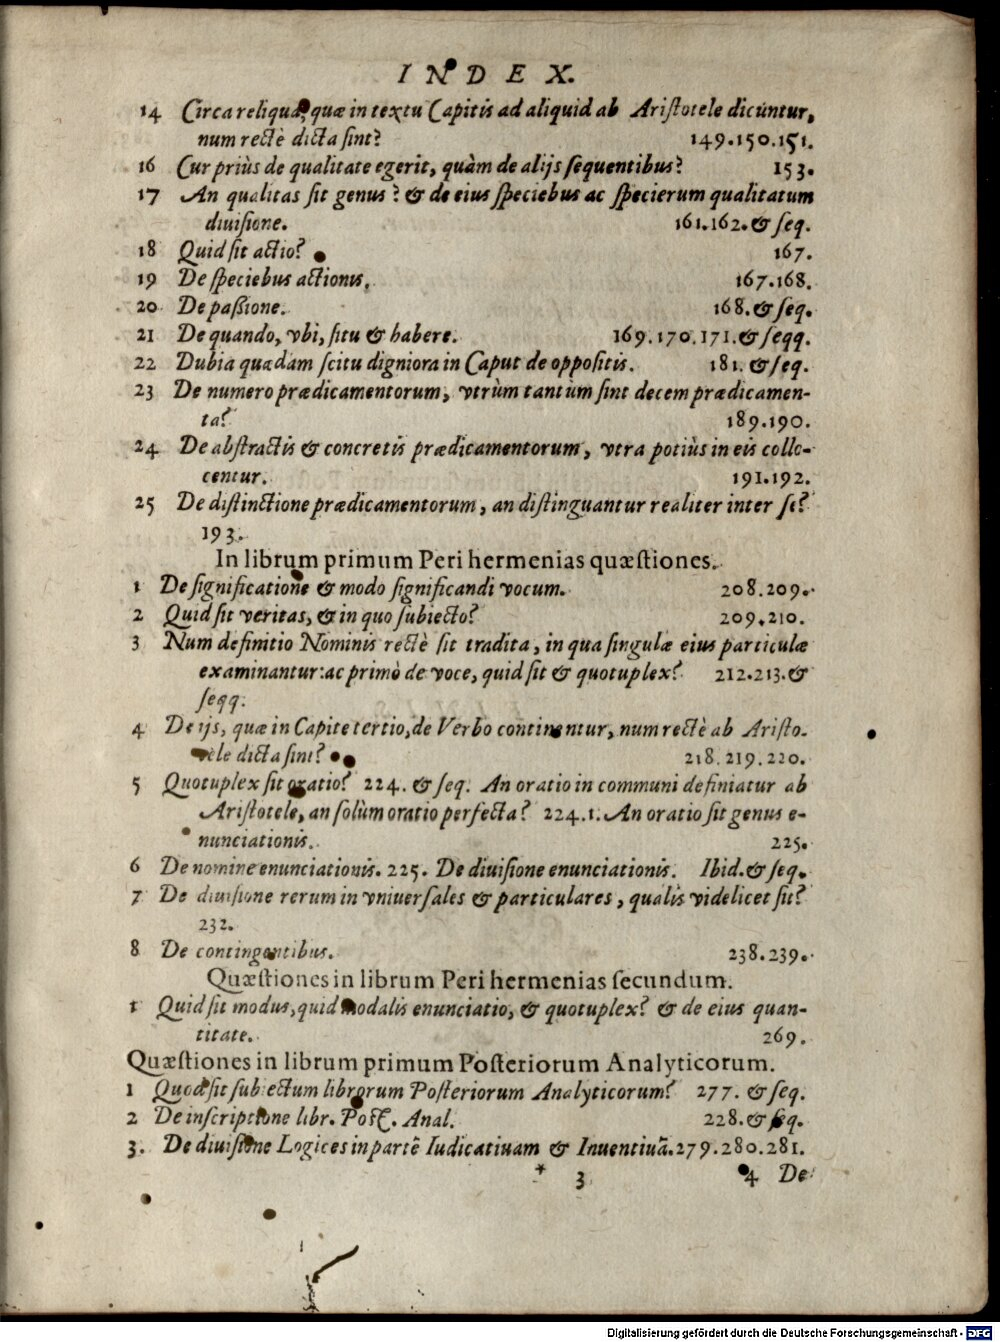 INDEX.
14 Circa reliqua, quæ in textu Capitis ad aliquid ab Aristotele dicuntur,
num rectè dicta sint? 149.150.151.
16 Cur priùs de qualitate egerit, quàm de alijs sequentibus? 153.
17 An qualitas sit genus? & de eius speciebus ac specierum qualitatum
diuisione. 161.162. & seq.
18 Quid sit actio? 167.
19 De speciebus actionis. 167.168.
20 De paßione. 168. & seq.
21 De quando, vbi, situ & habere. 169.170.171. & seqq.
22 Dubia quædam scitu digniora in Caput de oppositis. 181. & seq.
23 De numero prædicamentorum, vtrùm tantùm sint decem prædicamen-
ta? 189.190.
24 De abstractis & concretis prædicamentorum, vtra potiùs in eis collo-
centur. 191.192.
25 De distinctione prædicamentorum, an distinguantur realiter inter se?
193.
In librum primum Peri hermenias quæstiones.
1 De significatione & modo significandi vocum. 208.209.
2 Quid sit veritas, & in quo subiecto? 209.210.
3 Num definitio Nominis rectè sit tradita, in qua singulæ eius particulæ
examinantur: ac primò de voce, quid sit & quotuplex? 212.213. &
seqq.
4 De ijs, quæ in Capite tertio, de Verbo continentur, num rectè ab Aristo-
tele dicta sint? 218.219.220.
5 Quotuplex sit oratio? 224. & seq. An oratio in communi definiatur ab
Aristotele, an solùm oratio perfecta? 224.1. An oratio sit genus e-
nunciationis. 225.
6 De nomine enunciationis. 225. De diuisione enunciationis. Ibid. & seq.
7 De diuisione rerum in vniuersales & particulares, qualis videlicet sit?
232.
8 De contingentibus. 238.239.
Quæstiones in librum Peri hermenias secundum.
1 Quid sit modus, quid modalis enunciatio, & quotuplex? & de eius quan-
titate. 269.
Quæstiones in librum primum Posteriorum Analyticorum.
1 Quod sit subiectum librorum Posteriorum Analyticorum? 277. & seq.
2 De inscriptione libr. Post. Anal. 228. & seq.
3. De diuisione Logices in partē Iudicatiuam & Inuentiuā. 279.280.281.
* 3 4 De
Digitalisierung gefördert durch die Deutsche Forschungsgemeinschaft - DFG